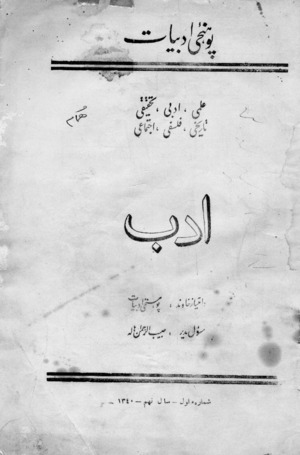 پوهنځی ادبیات
علمی ، ادبی ، تحقیقی
تاریخی ، فلسفی ، اجتماعی
ادب
امتیاز خاوند ، پوهنځی ادبیات
مسؤل مدیر ، حبیب الرحمن هاله
شماره اول – سال نهم – ۱۳۴۰